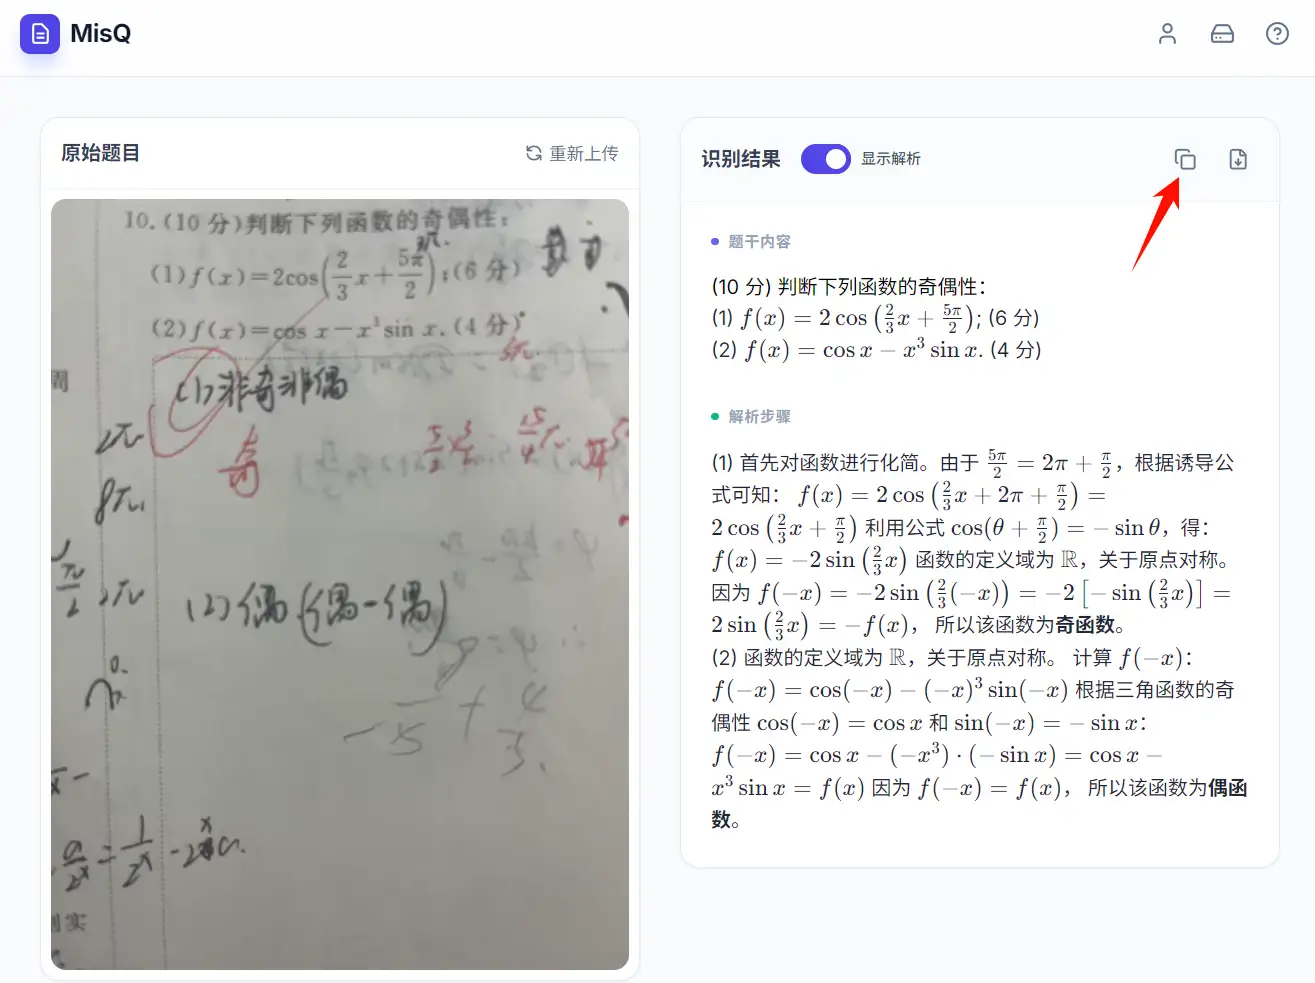 MisQ
原始题目
重新上传
10.(10 分)判断下列函数的奇偶性:
(1) f(x)=2cos(2/3 x+5π/2);(6 分)
(2) f(x)=cos x-x³sin x.(4 分)
(1)非奇非偶
奇
2π
8π
(2)偶(偶-偶)
识别结果
显示解析
题干内容
(10 分) 判断下列函数的奇偶性：
(1) f(x) = 2 cos (2/3 x + 5π/2); (6 分)
(2) f(x) = cos x − x³ sin x. (4 分)
解析步骤
(1) 首先对函数进行化简。由于 5π/2 = 2π + π/2，根据诱导公
式可知： f(x) = 2 cos (2/3 x + 2π + π/2) =
2 cos (2/3 x + π/2) 利用公式 cos(θ + π/2) = − sin θ，得：
f(x) = −2 sin (2/3 x) 函数的定义域为 ℝ，关于原点对称。
因为 f(−x) = −2 sin (2/3 (−x)) = −2 [− sin (2/3 x)] =
2 sin (2/3 x) = −f(x)， 所以该函数为奇函数。
(2) 函数的定义域为 ℝ，关于原点对称。 计算 f(−x)：
f(−x) = cos(−x) − (−x)³ sin(−x) 根据三角函数的奇
偶性 cos(−x) = cos x 和 sin(−x) = − sin x：
f(−x) = cos x − (−x³) · (− sin x) = cos x −
x³ sin x = f(x) 因为 f(−x) = f(x)， 所以该函数为偶函
数。